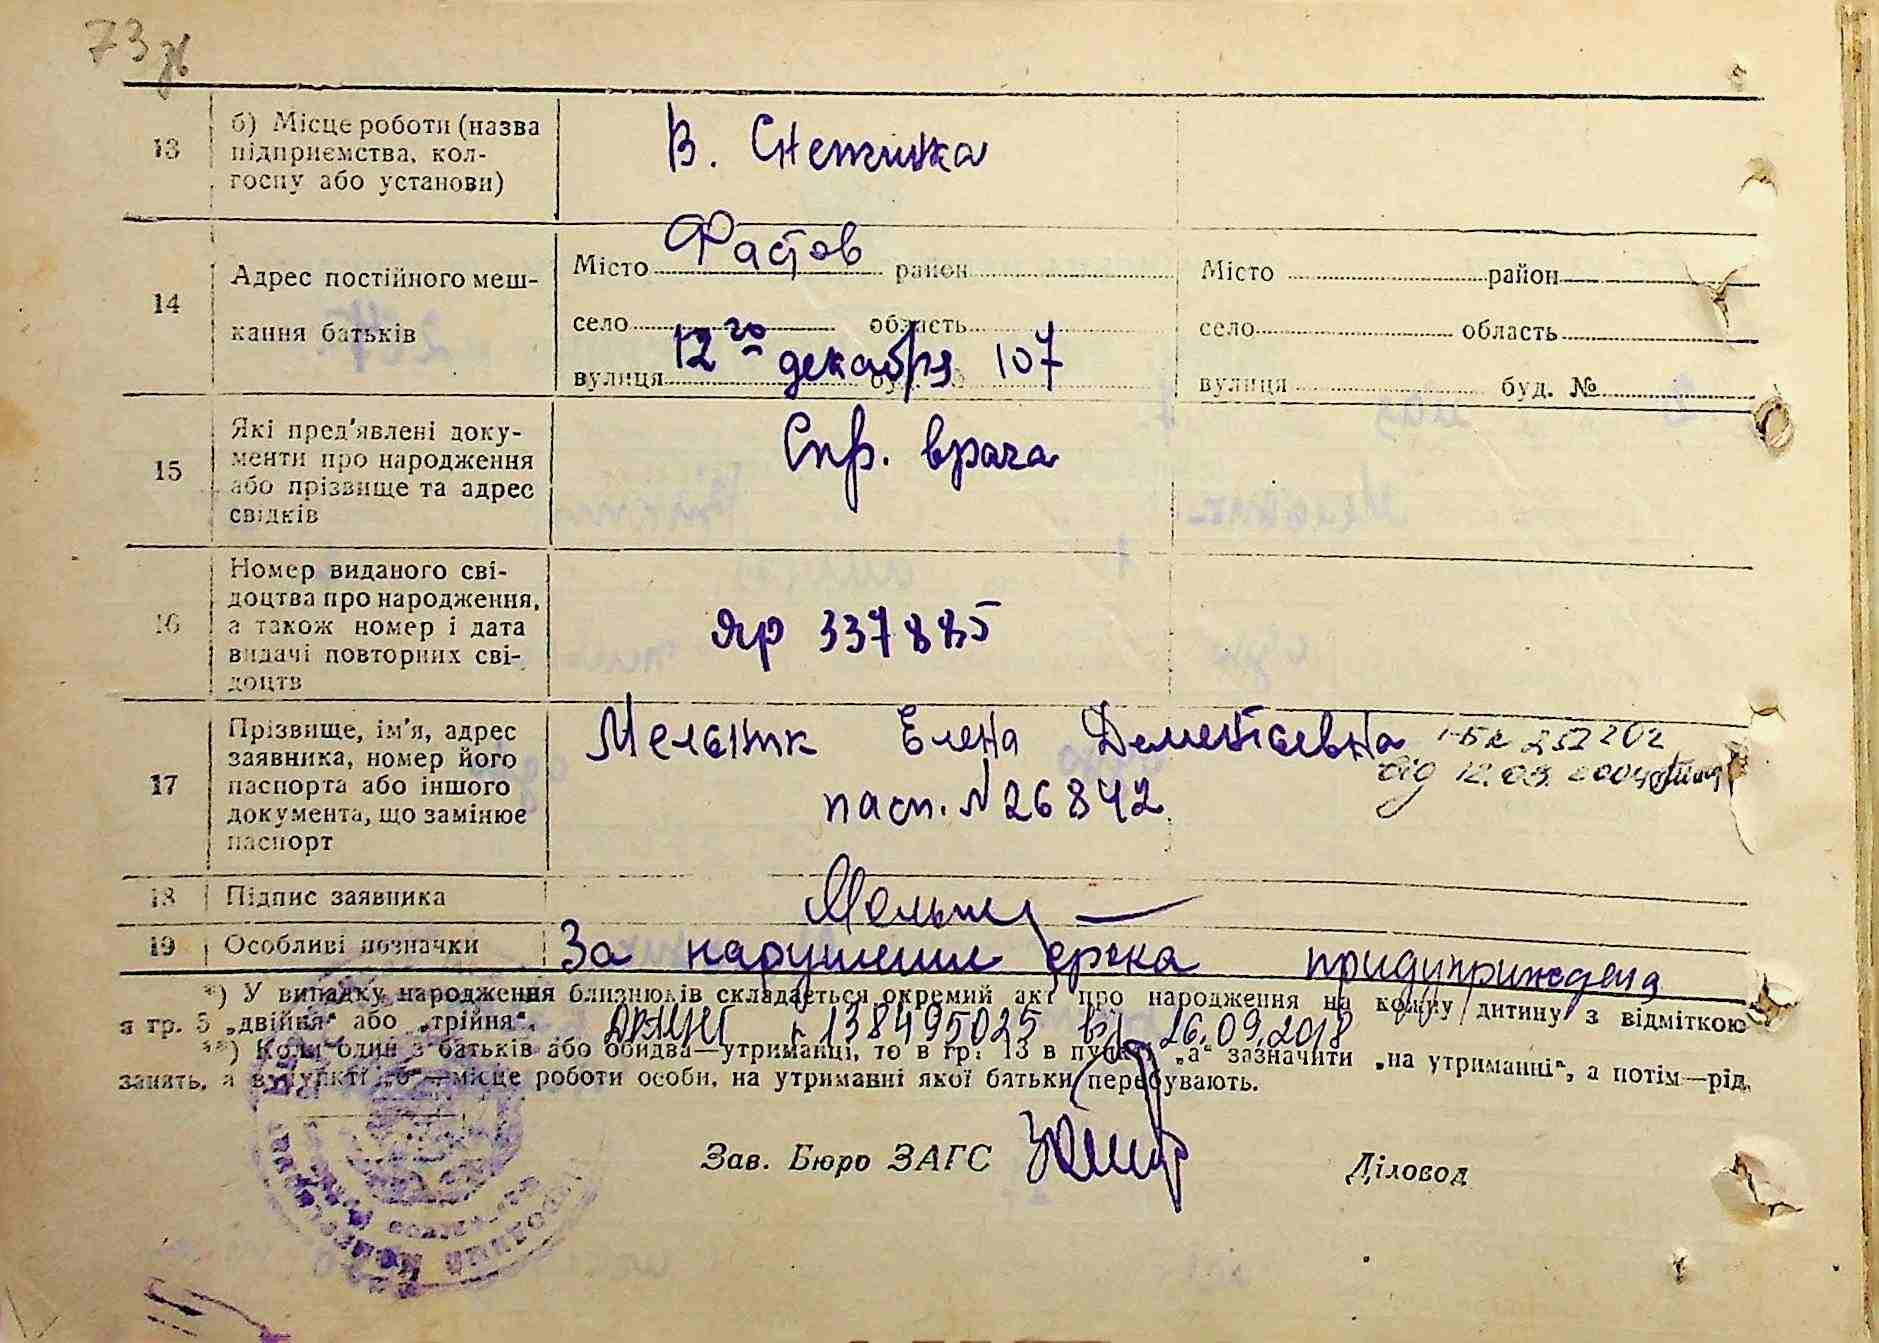 73
13
б) Місце роботи (назва
підприємства, кол-
госпу або установи)
В. Снетинка
14
Адрес постійного меш-
кання батьків
Місто Фастов район
село область
вулиця 12го декабря 107
Місто район
село область
вулиця буд. №
15
Які пред'явлені доку-
менти про народження
або прізвище та адрес
свідків
Спр. врача
16
Номер виданого сві-
доцтва про народження,
а також номер і дата
видачі повторних сві-
доцтв
ЯР 337885
17
Прізвище, ім'я, адрес
заявника, номер його
паспорта або іншого
документа, що замінює
паспорт
Елена Дементиевна
пасп. N 26842
від 12.03.2004
18
Підпис заявника
19
Особливі позначки
За нарушение срока придуприждена
*) У випадку народження близнюків складається окремий акт про народження на кожну дитину з відміткою
в гр. 5 „двійня" або „трійня".
138495025 від 26.09.2018
**) Коли один з батьків або обидва—утриманці, то в гр. 13 в пункті „а" зазначити „на утриманні", а потім—рід
занять, а в пункті „б"—місце роботи особи, на утриманні якої батьки перебувають.
Зав. Бюро ЗАГС
Діловод